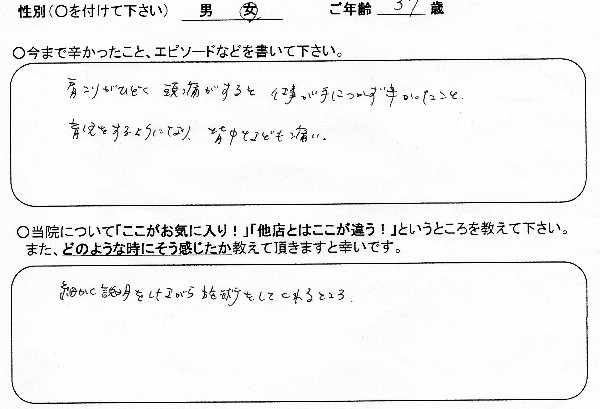 性別(○を付けて下さい) 男 女 ご年齢 37 歳
○今まで辛かったこと、エピソードなどを書いて下さい。
肩こりがひどく 頭痛がすると 仕事が手につかず辛かったこと.
育児をするようになり、背中なども痛い.
○当院について「ここがお気に入り!」「他店とはここが違う!」というところを教えて下さい。
また、どのような時にそう感じたか教えて頂きますと幸いです。
細かく説明をしながら施術をしてくれるところ.